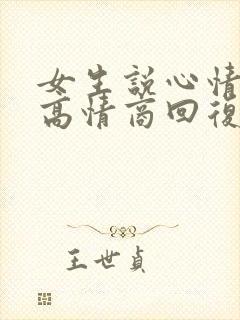 女生説心情
高情商回復
王世貞